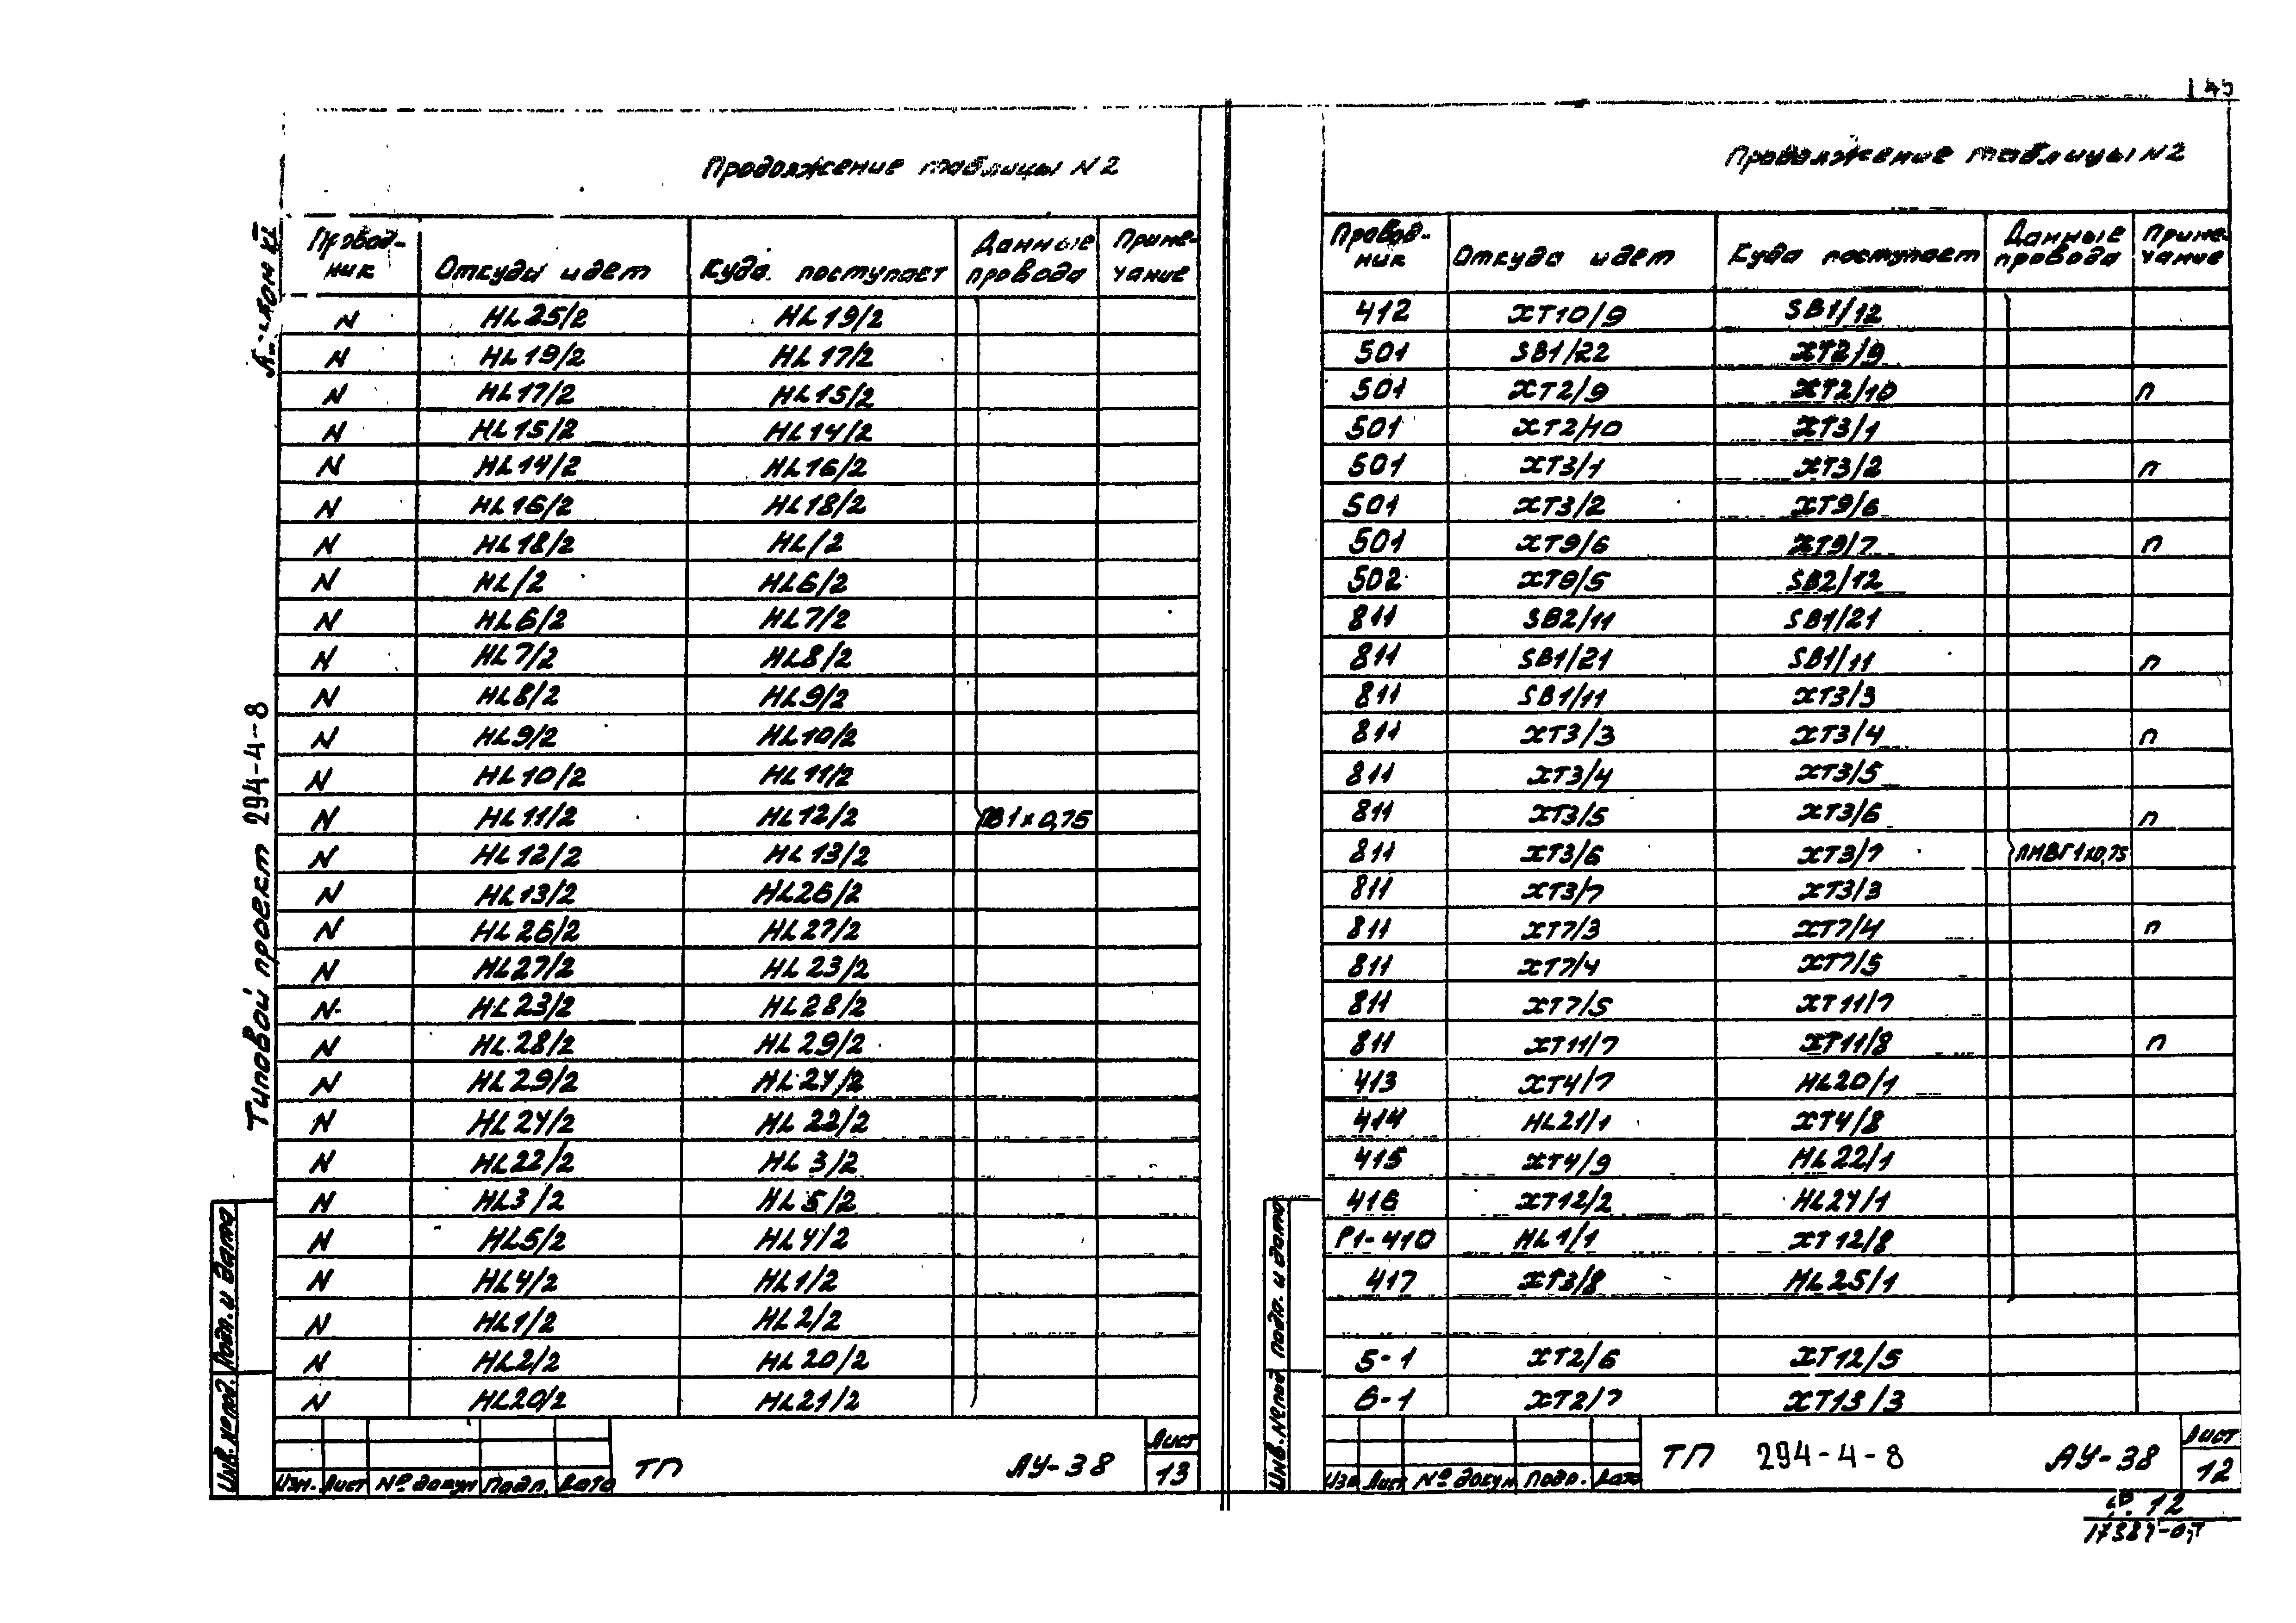 Продолжение таблицы N2
Провод-ник Откуда идет Куда поступает Данные провода Приме-чание
N HL25/2 HL19/2
N HL19/2 HL17/2
N HL17/2 HL15/2
N HL15/2 HL14/2
N HL14/2 HL16/2
N HL16/2 HL18/2
N HL18/2 HL/2
N HL/2 HL6/2
N HL6/2 HL7/2
N HL7/2 HL8/2
N HL8/2 HL9/2
N HL9/2 HL10/2
N HL10/2 HL11/2
N HL11/2 HL12/2 ПВ1х0,75
N HL12/2 HL13/2
N HL13/2 HL26/2
N HL26/2 HL27/2
N HL27/2 HL23/2
N HL23/2 HL28/2
N HL28/2 HL29/2
N HL29/2 HL24/2
N HL24/2 HL22/2
N HL22/2 HL3/2
N HL3/2 HL5/2
N HL5/2 HL4/2
N HL4/2 HL1/2
N HL1/2 HL2/2
N HL2/2 HL20/2
N HL20/2 HL21/2
Изм. Лист № докум Подп. Дата
ТП АУ-38
Лист
13
Типовой проект 294-4-8
Инв. № подл. Подп. и дата
145
Продолжение таблицы N2
Провод-ник Откуда идет Куда поступает Данные провода Приме-чание
412 XT10/9 SB1/12
501 SB1/22 XT2/9
501 XT2/9 XT2/10 п
501 XT2/10 XT3/1
501 XT3/1 XT3/2 п
501 XT3/2 XT9/6
501 XT9/6 XT9/7 п
502 XT9/5 SB2/12
811 SB2/11 SB1/21
811 SB1/21 SB1/11 п
811 SB1/11 XT3/3
811 XT3/3 XT3/4 п
811 XT3/4 XT3/5
811 XT3/5 XT3/6 п
811 XT3/6 XT3/7 ПМВГ1х0,75
811 XT3/7 XT3/3
811 XT7/3 XT7/4 п
811 XT7/4 XT7/5
811 XT7/5 XT11/7
811 XT11/7 XT11/8 п
413 XT4/7 HL20/1
414 HL21/1 XT4/8
415 XT4/9 HL22/1
416 XT12/2 HL24/1
P1-410 HL1/1 XT12/8
417 XT3/8 HL25/1
5-1 XT2/6 XT12/5
6-1 XT2/7 XT13/3
Изм Лист № докум Подп. Дата
ТП 294-4-8 АУ-38
Лист
12
Инв. № подл. Подп. и дата